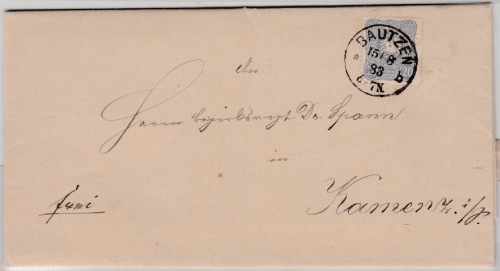 BAUTZEN
15/8
83
6-7N.
* b
20
An
Herrn Bezirksarzt Dr. Spann
in
Kamenz i/S.
frei